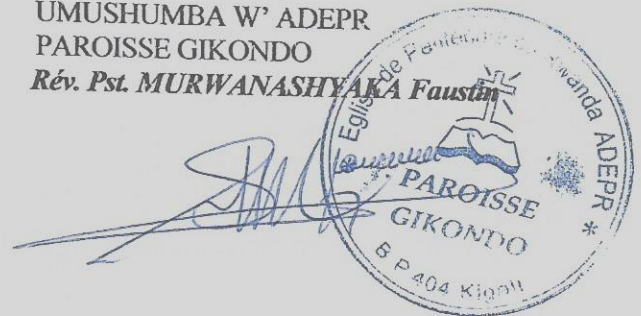 UMUSHUMBA W' ADEPR
PAROISSE GIKONDO
Rév. Pst. MURWANASHYAKA Faustin
Eglise de Pentecôte du Rwanda ADEPR *
PAROISSE
GIKONDO
B P 404 Kigali